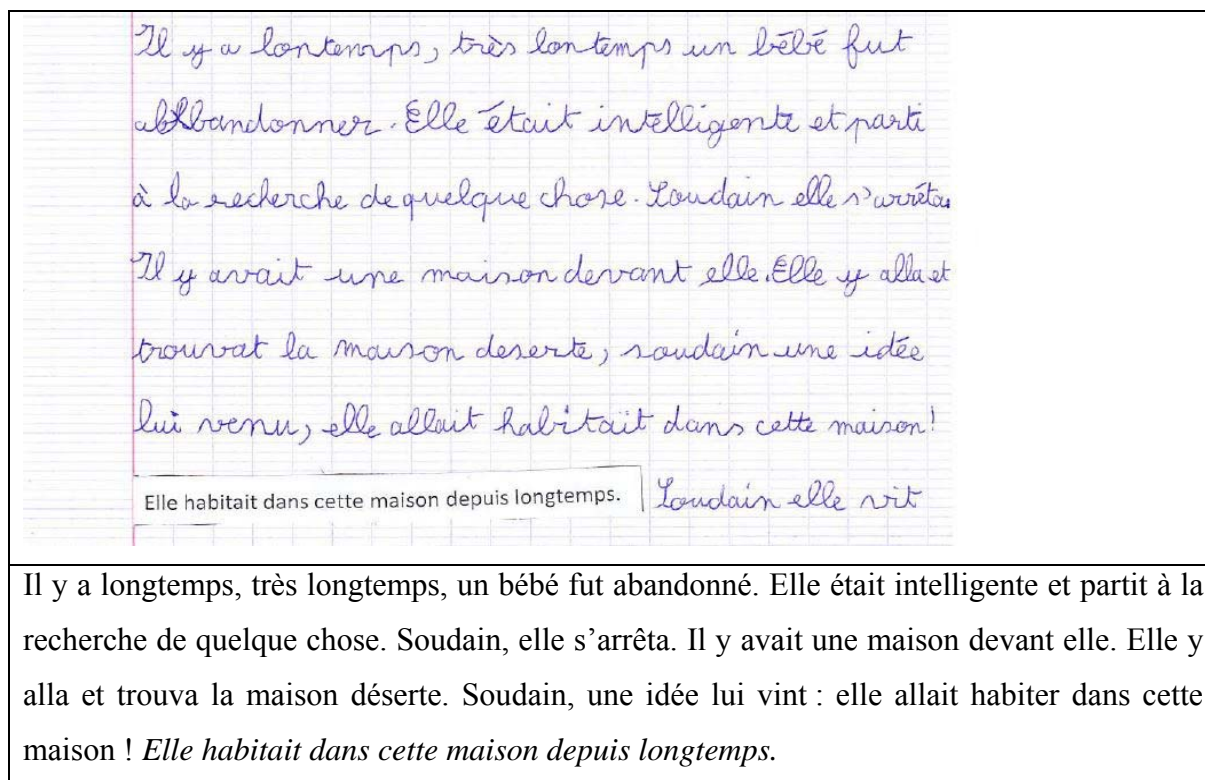 Il y a lontemps, très lontemps un bébé fut
abbandonner. Elle était intelligente et parti
à la recherche de quelque chose. Soudain elle s'arrêta
Il y avait une maison devant elle. Elle y alla et
trouvat la maison deserte, soudain une idée
lui venu, elle allait habitait dans cette maison!
Elle habitait dans cette maison depuis longtemps. Soudain elle vit
Il y a longtemps, très longtemps, un bébé fut abandonné. Elle était intelligente et partit à la
recherche de quelque chose. Soudain, elle s'arrêta. Il y avait une maison devant elle. Elle y
alla et trouva la maison déserte. Soudain, une idée lui vint : elle allait habiter dans cette
maison ! Elle habitait dans cette maison depuis longtemps.